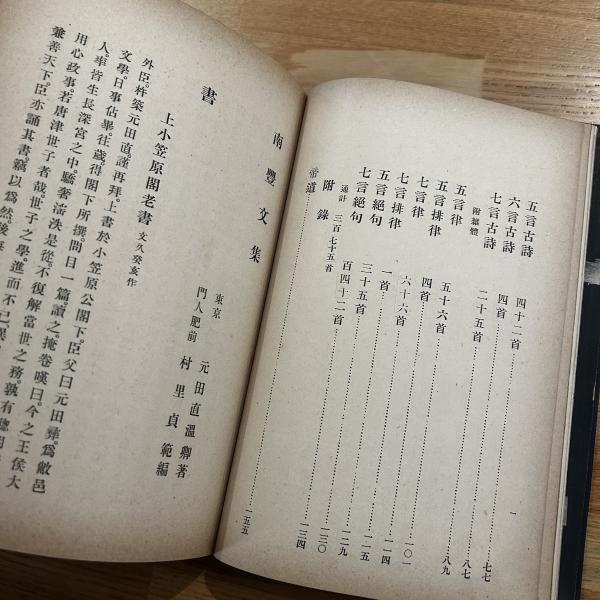 五言古詩 四十二首 七七
六言古詩 四首 八七
七言古詩 二十五首 八九
附雜體
五言律 五十六首 一〇一
五言排律 四首 一一四
七言律 六十六首 一一五
七言排律 一首 一二九
五言絕句 三十五首 一三〇
七言絕句 百四十二首 一三四
通計 三百七十五首
附錄
帝道 一五五
一
南豐文集
東京 元田直溫卿著
門人肥前 村里貞範編
書
上小笠原閣老書 文久癸亥作
外臣。杵築元田直。謹再拜。上書於小笠原公閣下。臣父曰元田彝。爲敝邑
文學。日事佔畢。往歲。得閣下所撰。問目一篇。讀之。掩卷嘆曰。今之王侯大
人。率皆生長深宮之中。驕奢淫泆是從。不復解當世之務。孰有聰明
用心政事。若唐津世子者哉。世子之學。進而不已。異
兼善天下。臣亦誦其書。竊以爲然。後